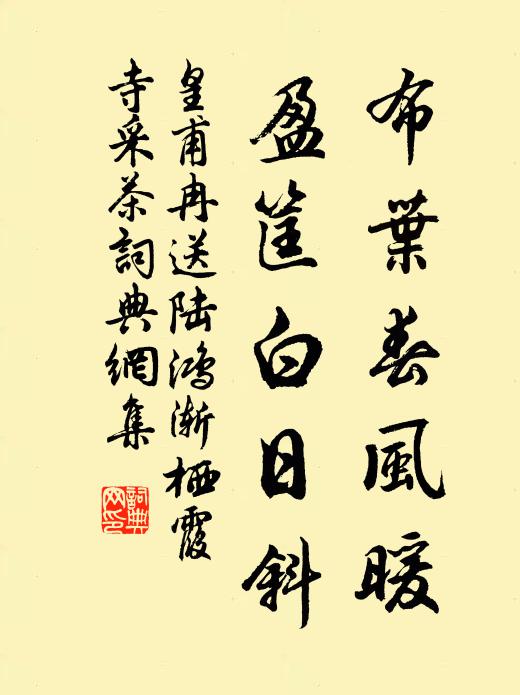 布葉春風暖
盈筐白日斜
皇甫冉送陸鴻漸栖霞
寺采茶詞典網集
詞典
网印